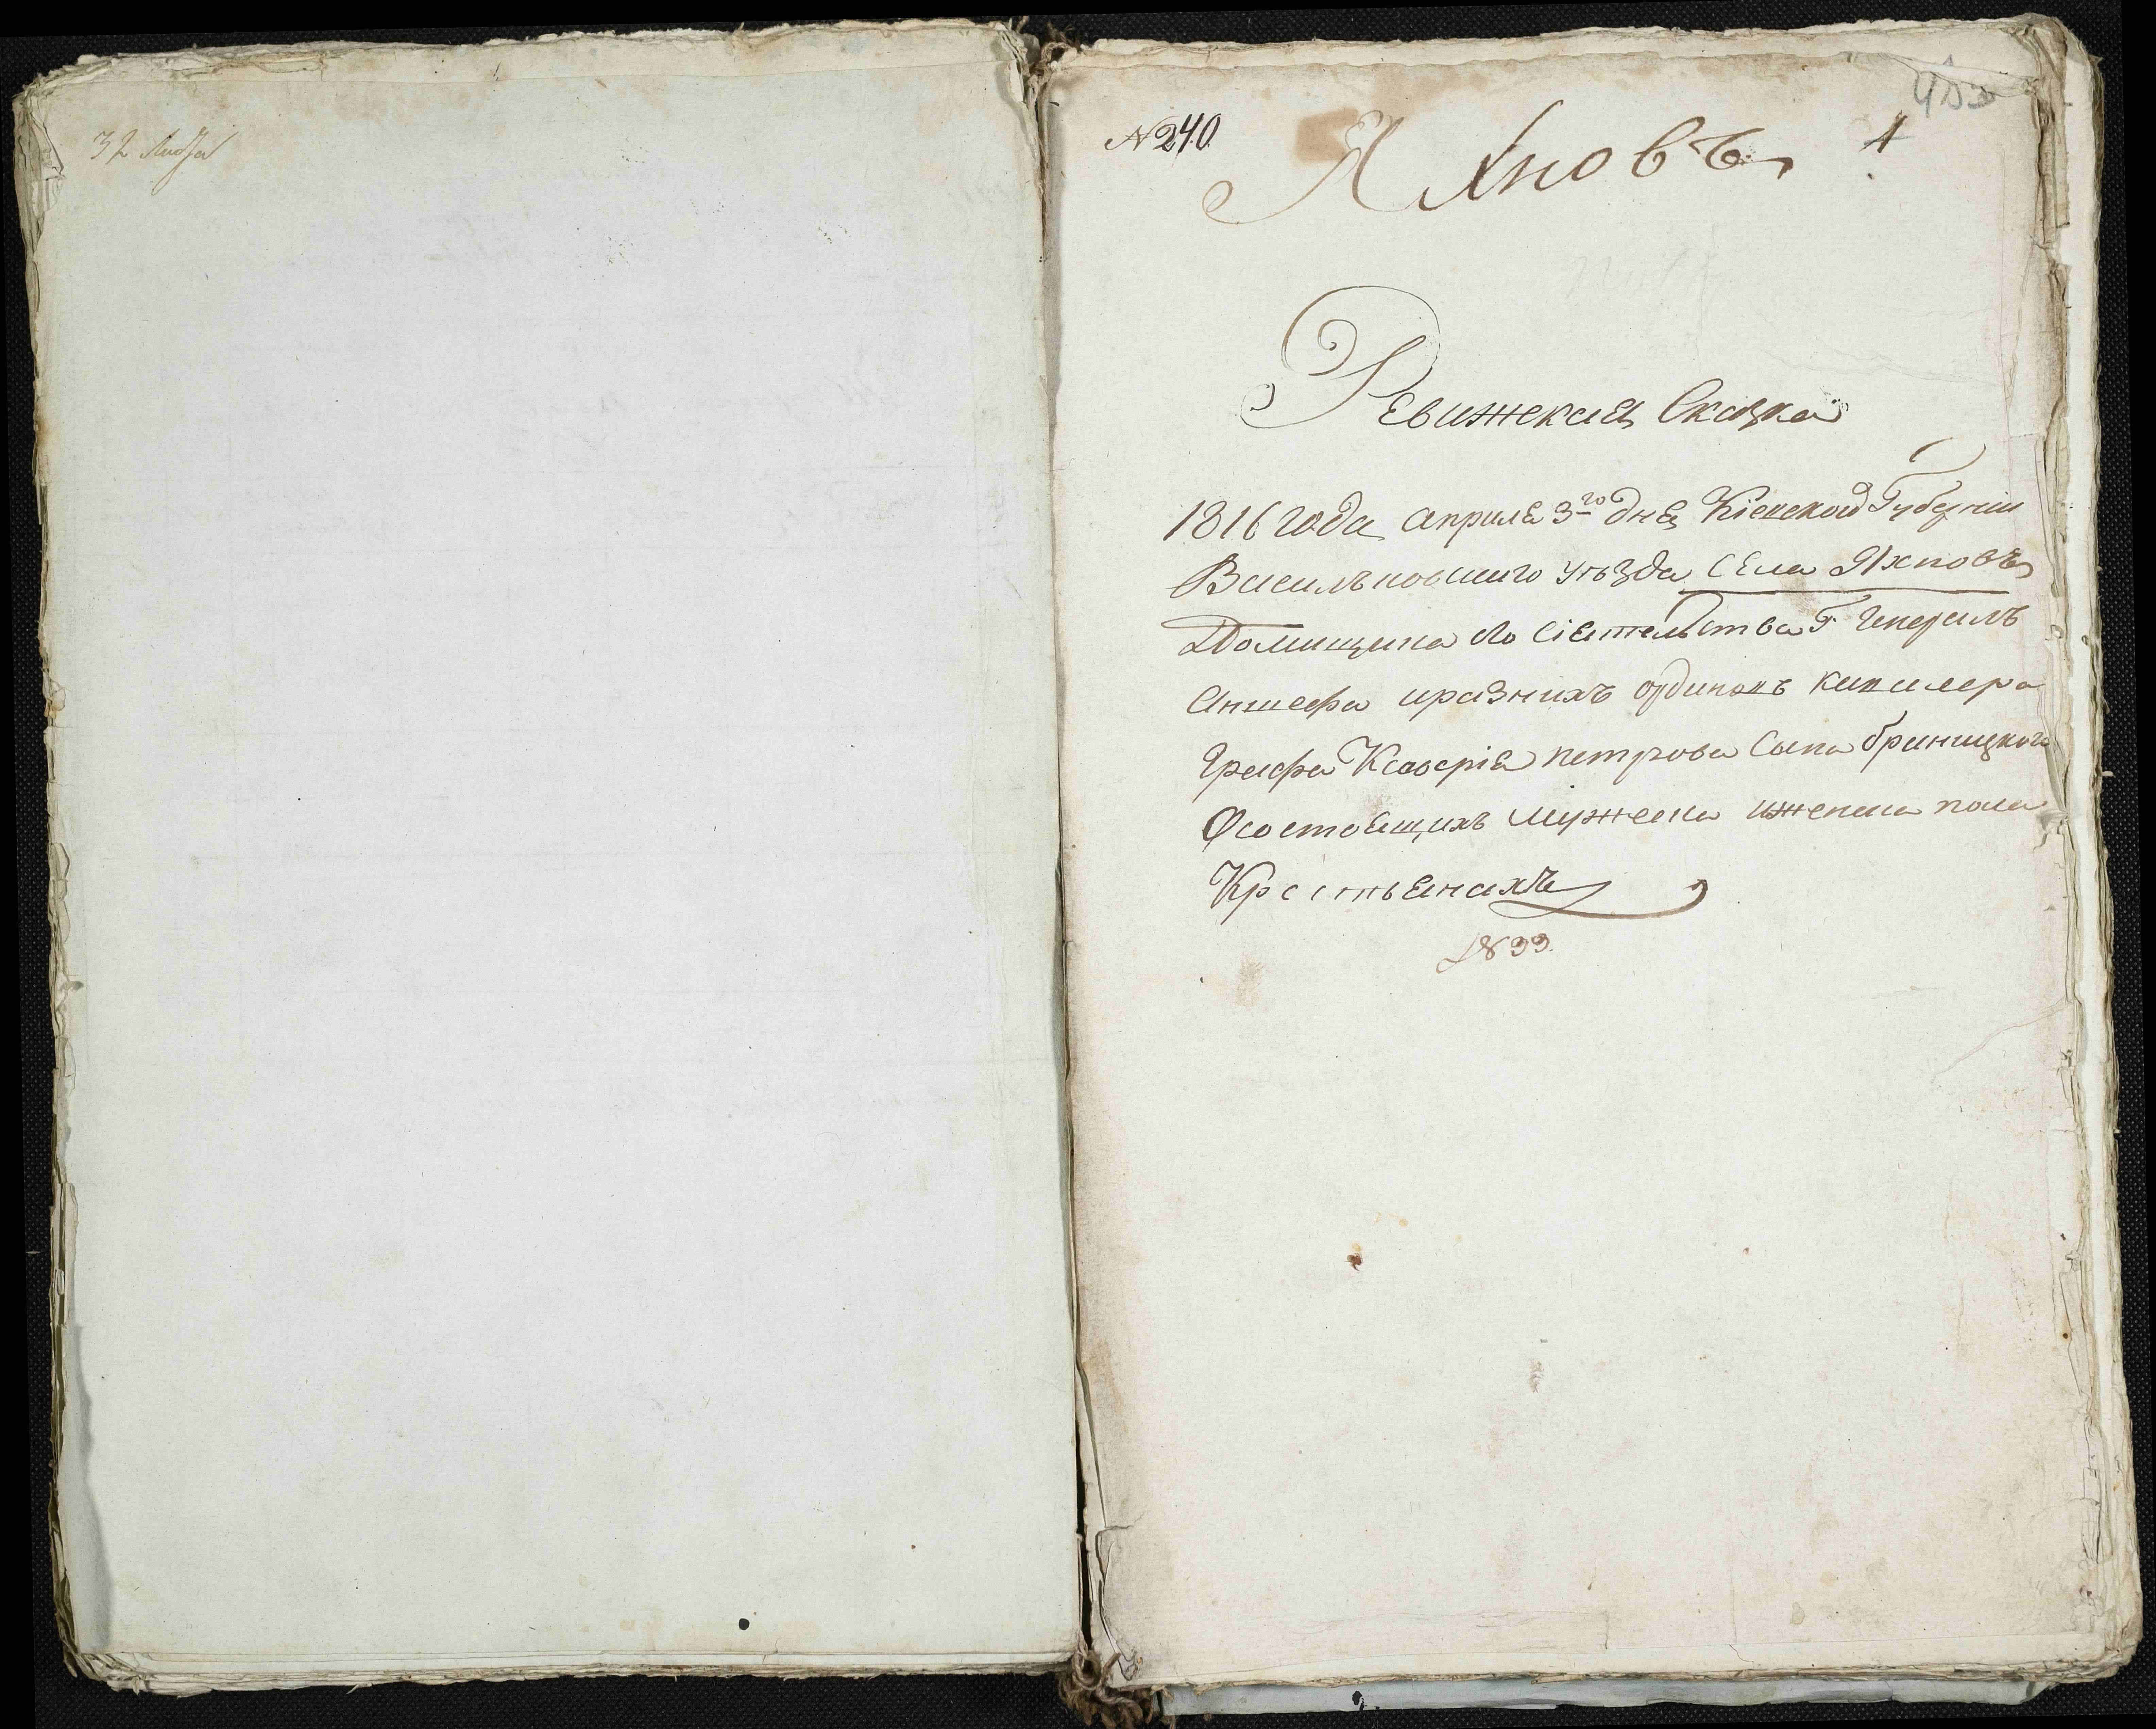 32 Листа
№240.
Яхновъ
1
Ревижская Сказка
1816 года апреля 3го дня Кіевской Губерніи
Васильковскаго уѣзда Села Яхновъ
Помищика его Сіятельства Г Генералъ
Аншефа иразнихъ ординовъ кавалера
Графа Ксаверія петрова сына браницкого
Осостоящихъ мужеска иженска пола
Крестьянахъ
1833.